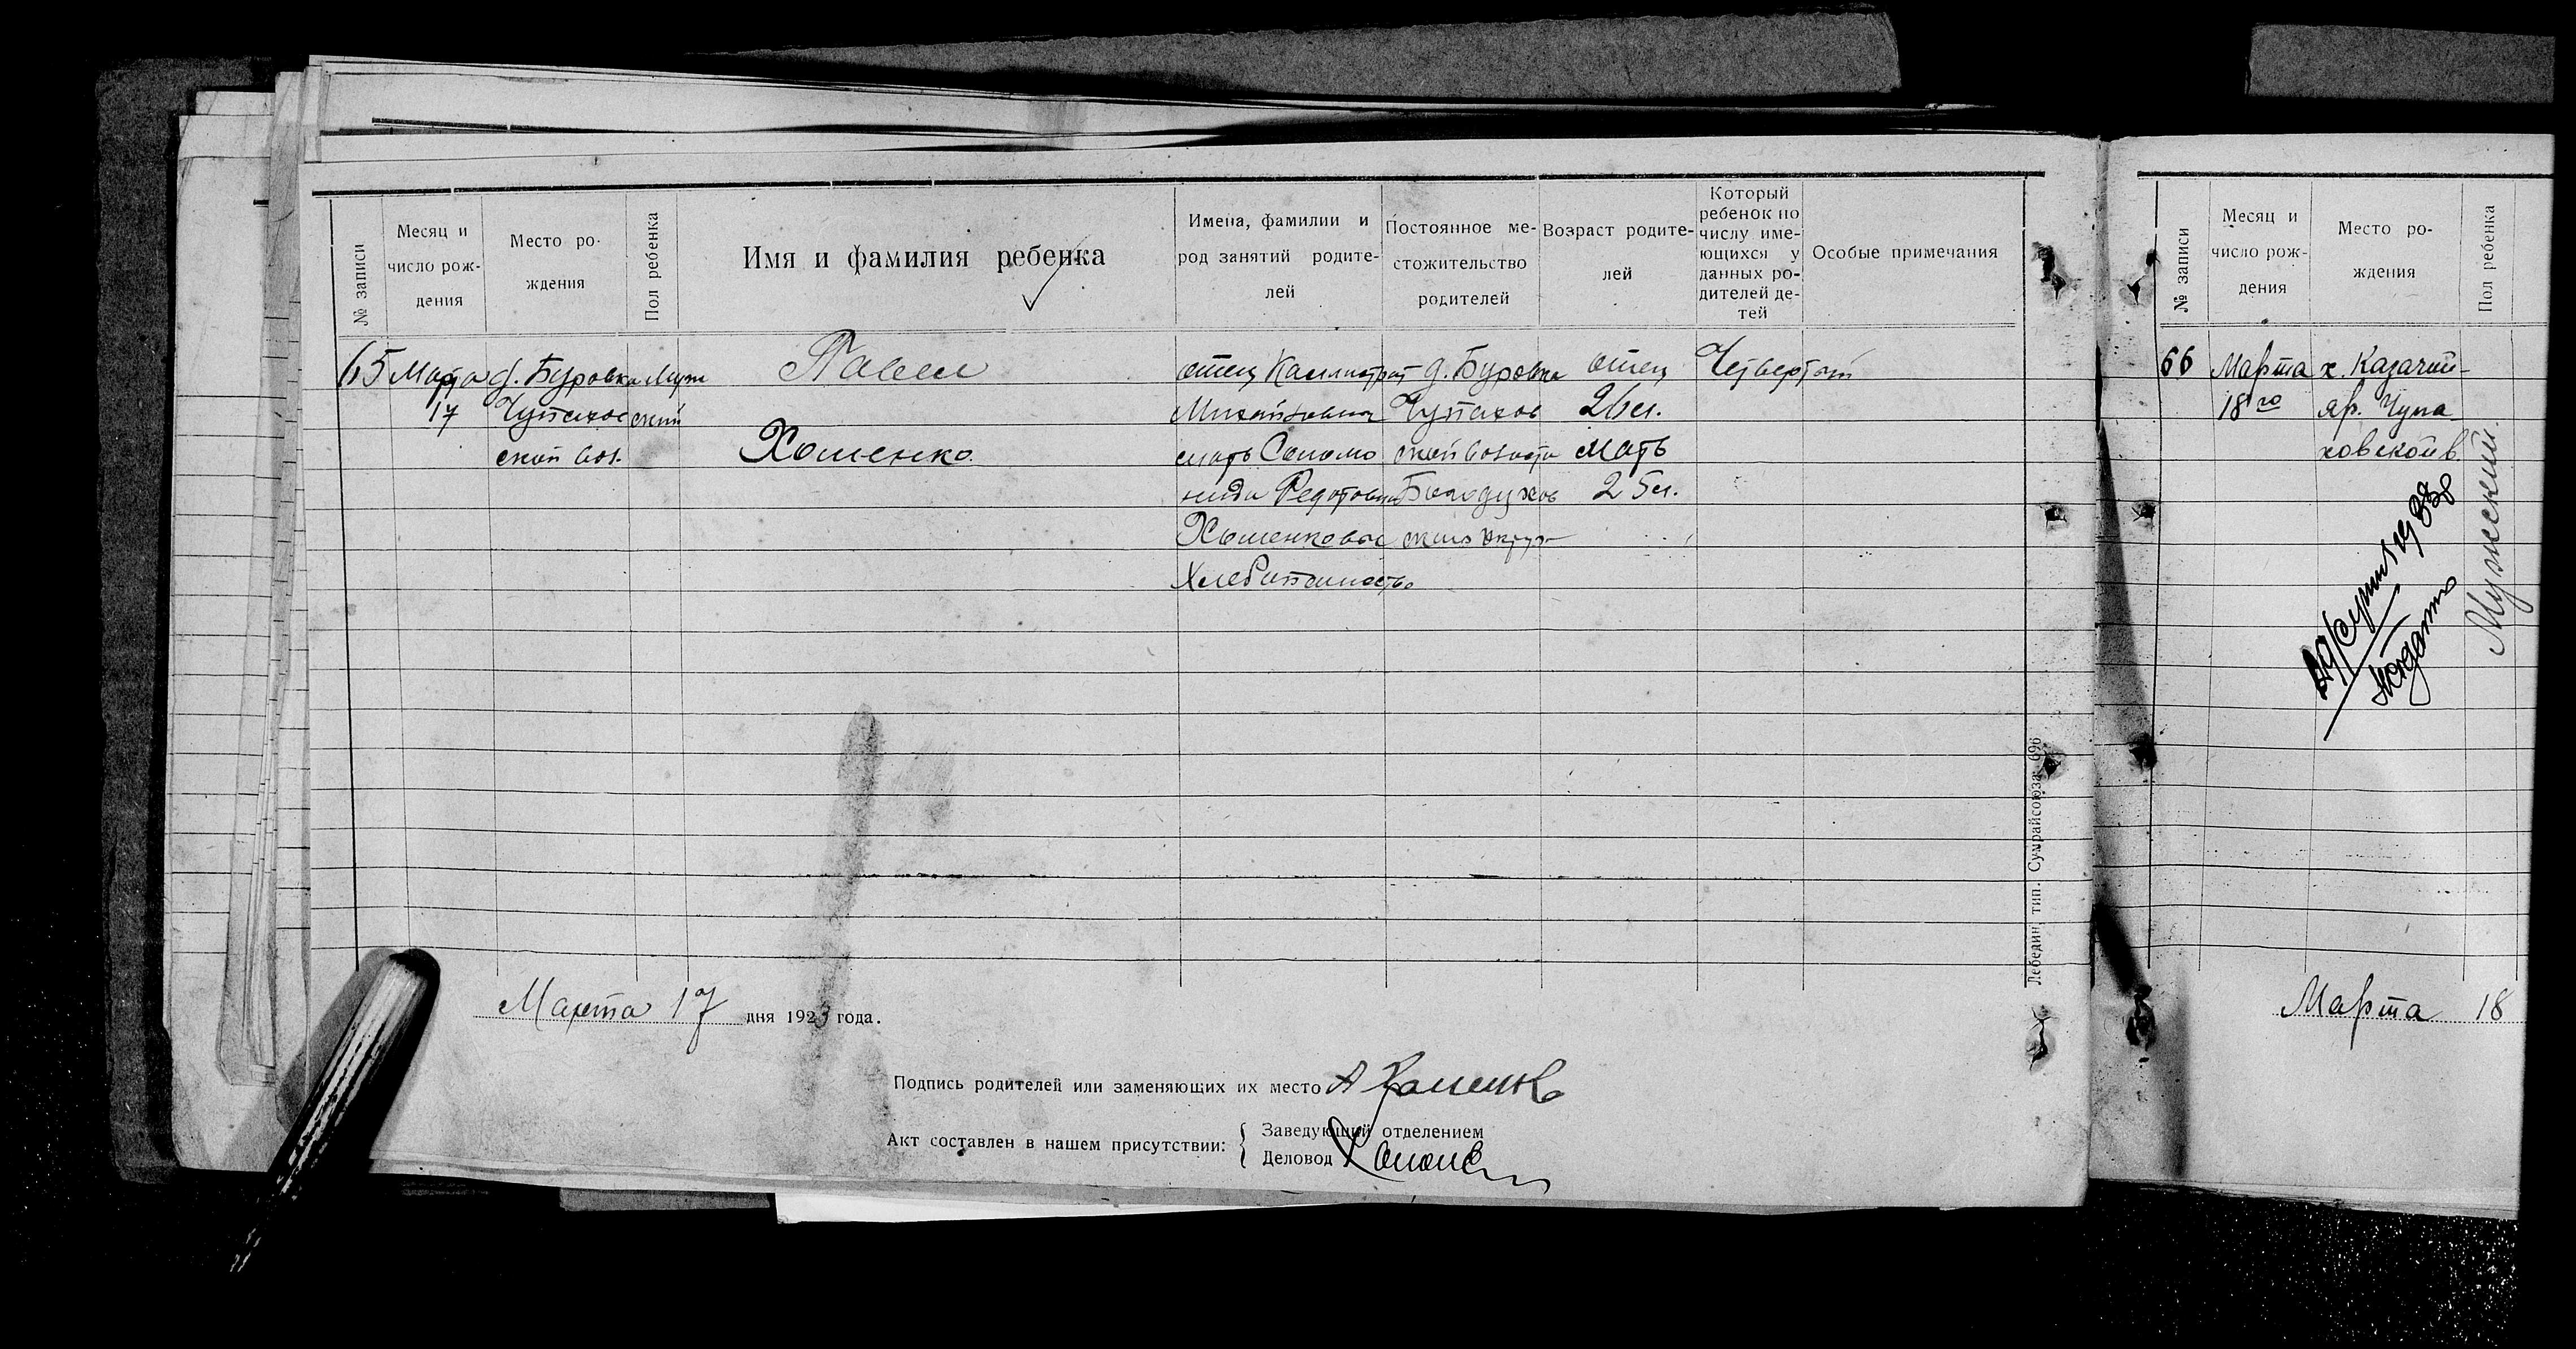 № записи
Месяц и число рождения
Место рождения
Пол ребенка
Имя и фамилия ребенка
Имена, фамилии и род занятий родителей
Постоянное местожительство родителей
Возраст родителей
Который ребенок по числу имеющихся у данных родителей детей
Особые примечания
65 Марта д. Буровка Муж Павел отец Каллистрат д. Буровка отец Четвертый
17 Чупахов ский Чупахов 26 л.
ской вол. Хоменко мать Соломо ской волости мать
нида Федотовна 25 л.
Хоменковы
Хлебопашество
Марта 17 дня 1923 года.
Подпись родителей или заменяющих их место А Хоменко
Акт составлен в нашем присутствии:
Заведующий отделением
Деловод
Лебедин, тип. Сумрайсоюза 696
№ записи
Месяц и число рождения
Место рождения
Пол ребенка
66 Марта х. Казачий
18го яр. Чупа
ховской в.
Мужский
Марта 18